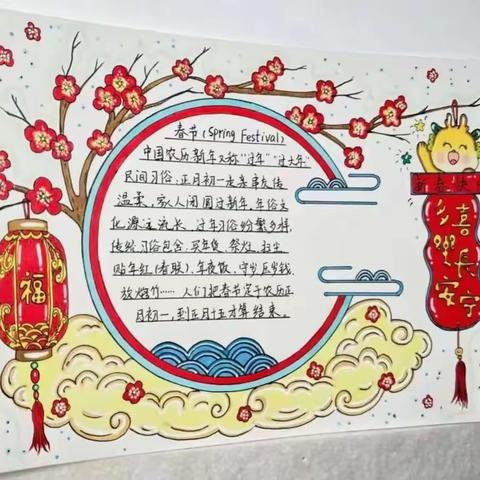 春节(Spring Festival)
中国农历新年又称"过年""过大年"
民间习俗,正月初一走亲串友传
温柔,家人闲圆过新年,年俗文
化源玄流长,过年习俗纷繁多样,
传统习俗包含、买年货、祭灶、扫尘
贴年红(春联)、年夜饭、守岁压岁钱、
放烟竹……人们把春节定于农历正
月初一,到正月十五才算结束。
福
新春快
喜樂長安宁